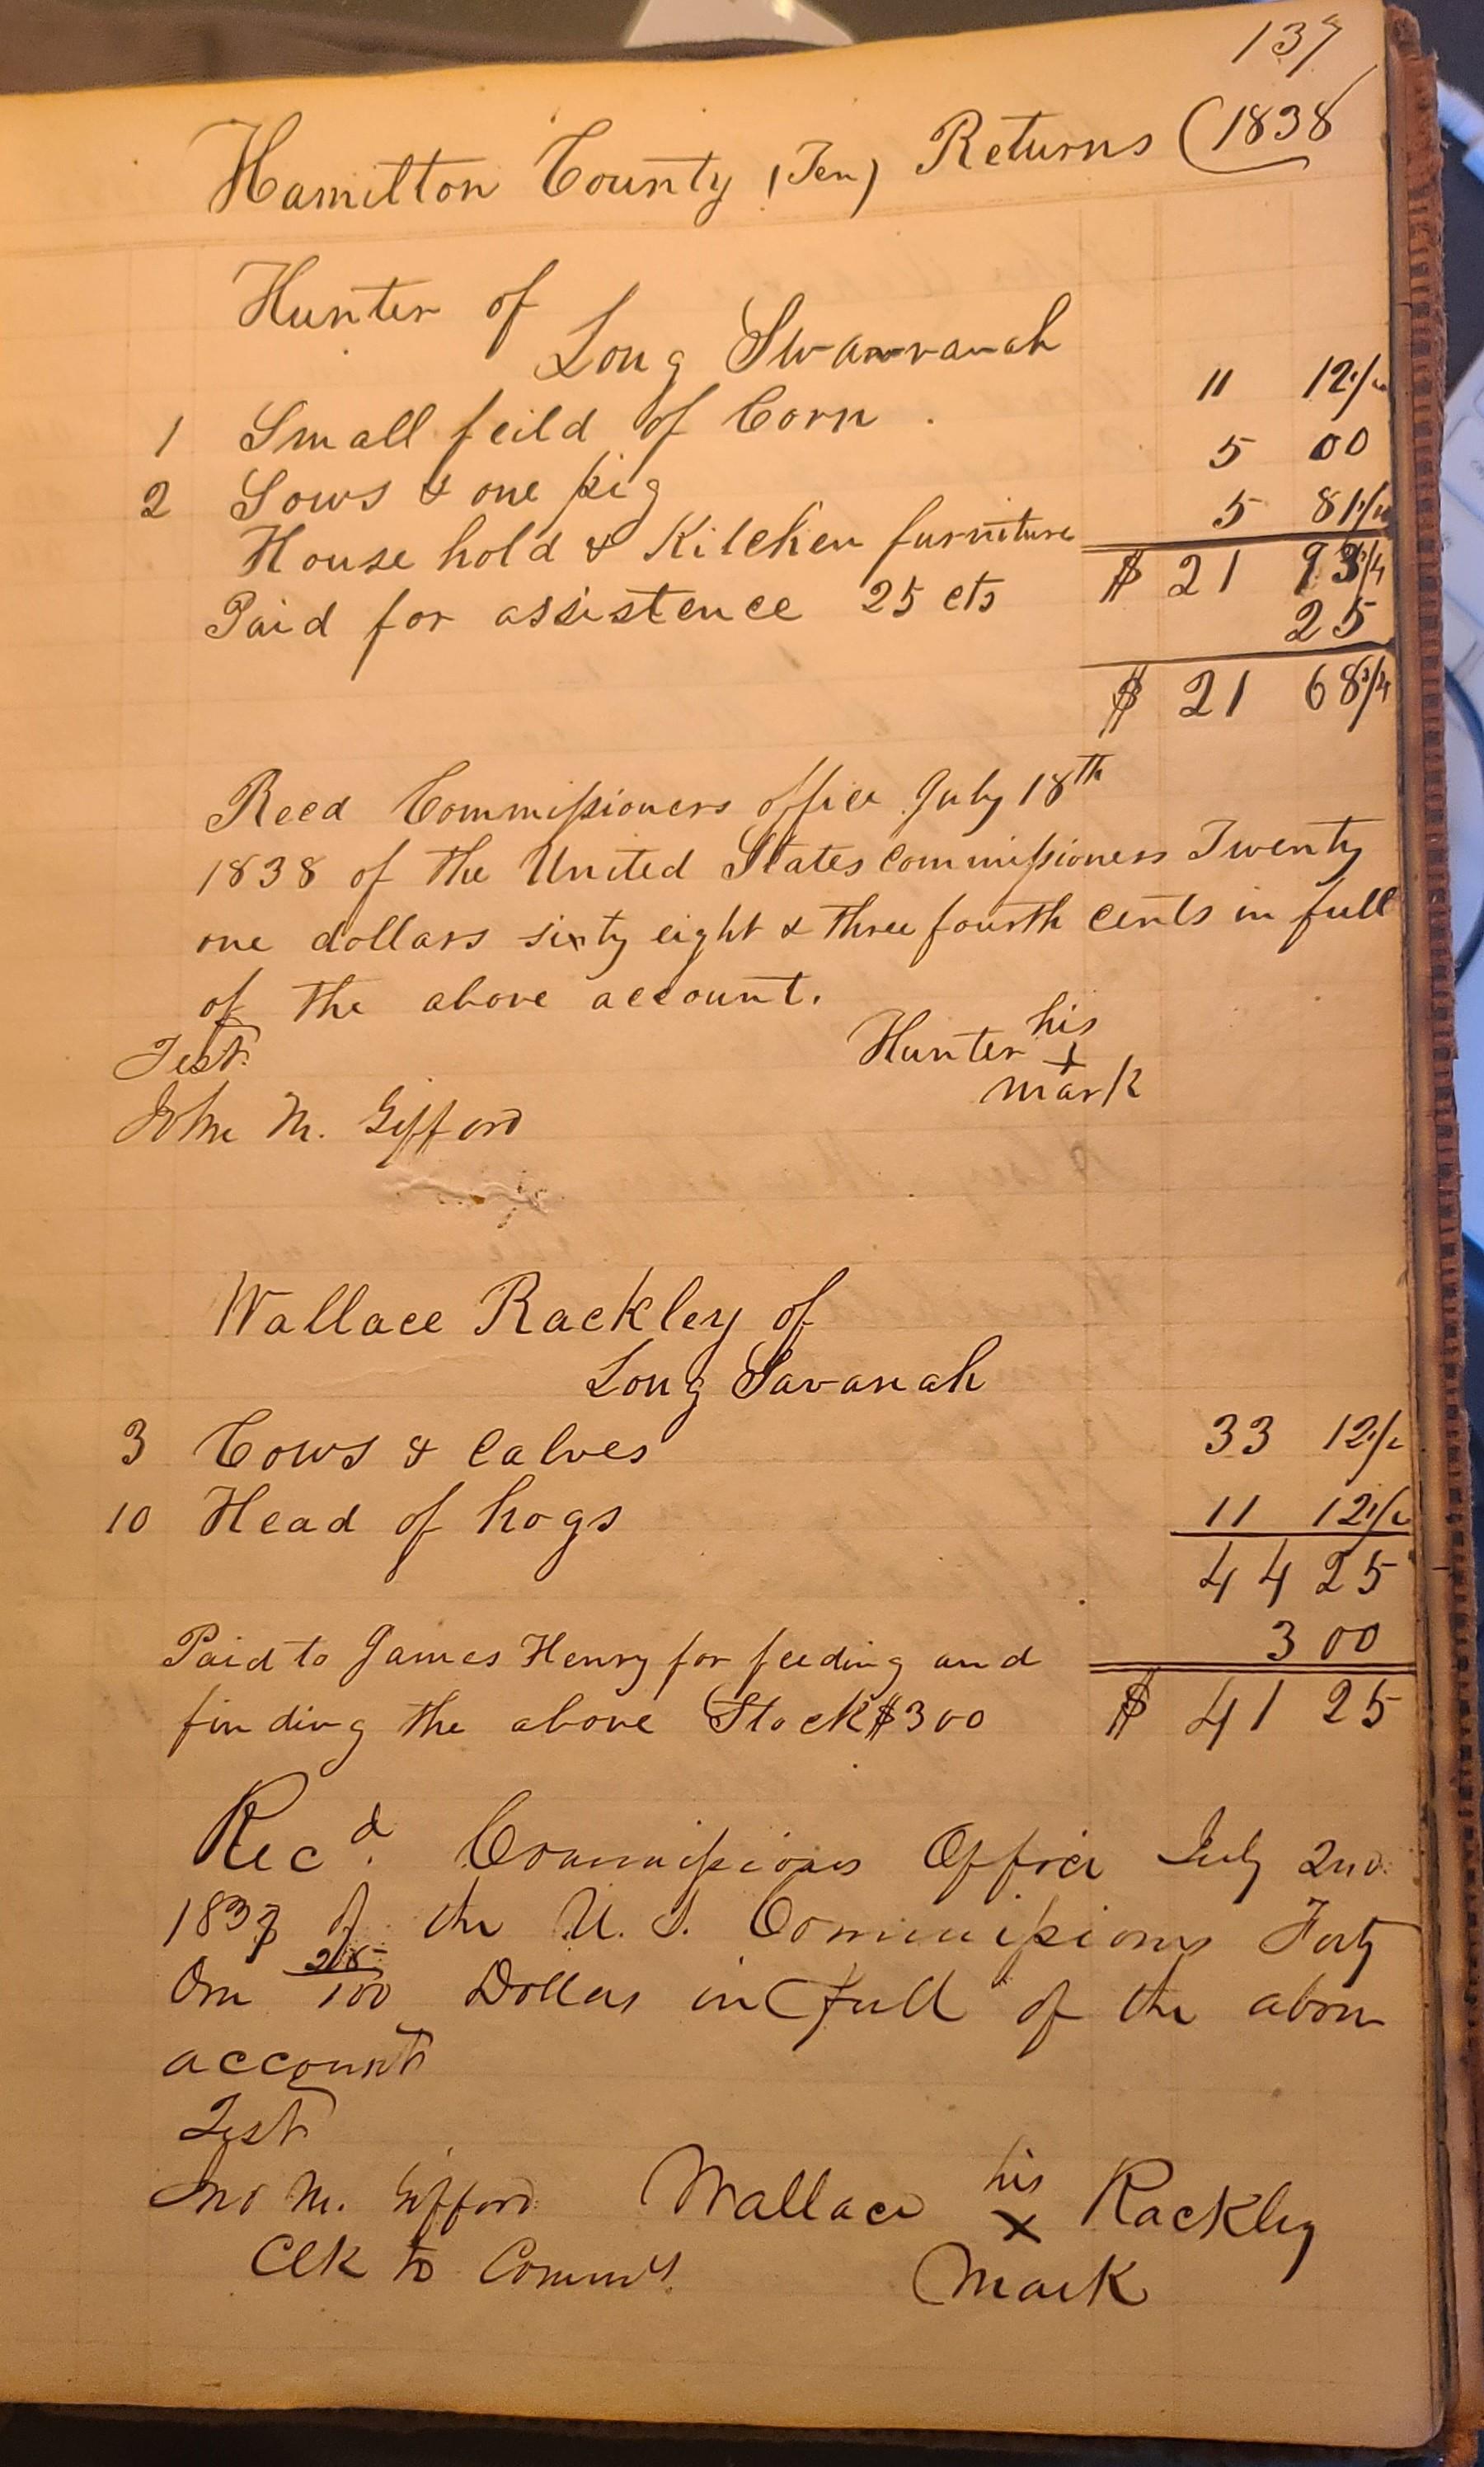 139
Hamilton County (Ten) Returns (1838
Hunter of
Long Swannanah
1 Small feild of Corn . 11 12 1/2
2 Sows & one pig 5 00
House hold & Kitchen furniture 5 81 1/4
Paid for assistence 25 cts $ 21 93 3/4
25
$ 21 68 3/4
Recd Commissioners office July 18th
1838 of the United States commissioners Twenty
one dollars sixty eight & three fourth cents in full
of the above account.
Test. Hunter his x mark
John M. Gifford
Wallace Rackley of
Long Savanah
3 Cows & Calves 33 12 1/2
10 Head of hogs 11 12 1/2
44 25
Paid to James Henry for feeding and 3 00
finding the above Stock $3 00 $ 41 25
Recd. Commissioners Office July 2nd
1838 of the U. S. Commissioners Forty
One 25/100 Dollars in full of the above
account
Test
Jno M. Gifford Wallace his x Rackley
Clk to Comms. Mark